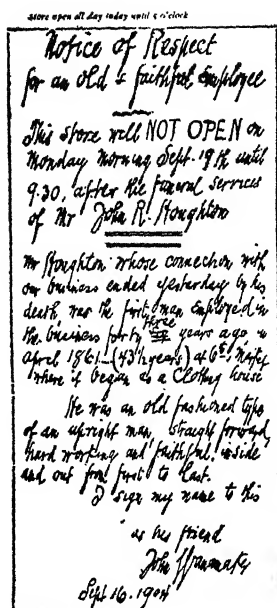 Store open all day today until 5 o'clock
Notice of Respect
for an old & faithful Employee
This store will NOT OPEN on
Monday Morning Sept. 19th until
9.30, after the funeral services
of Mr John R. Houghton
Mr Houghton whose connection with
our business ended yesterday by his
death was the first man Employed in
the business forty three years ago in
April 1861 – (43 years) at 6th & Market
where it began as a Clothing house
He was an old fashioned type
of an upright man, straight forward
hard working and faithful inside
and out from first to last.
I sign my name to this
as his friend
John Wanamaker
Sept 16. 1904